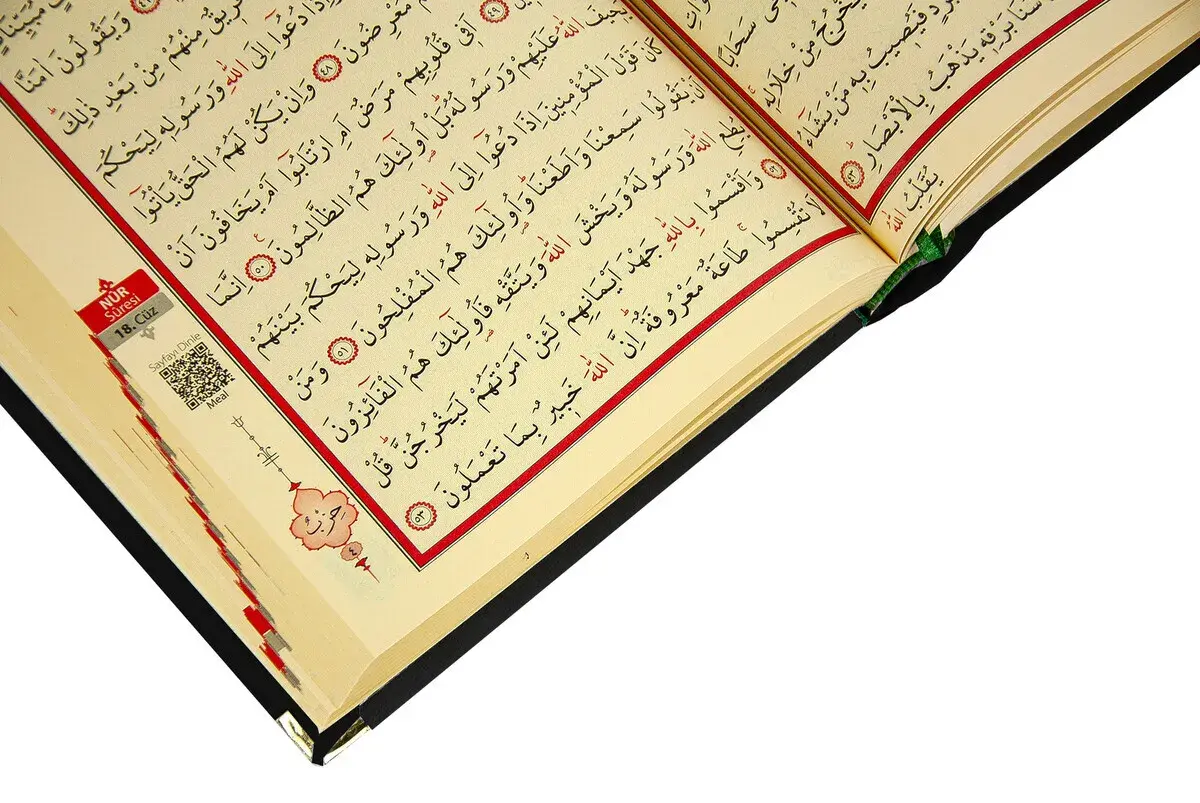 سَحَابًا
يَخْرُجُ مِنْ خِلَالِهِ
فَيُصِيبُ بِهِ مَنْ يَشَٓاءُ
سَنَا بَرْقِهِ يَذْهَبُ بِالْاَبْصَارِ ٤٣
يُقَلِّبُ اللّٰهُ
وَيَقُولُونَ اٰمَنَّا
فَرِيقٌ مِنْهُمْ مِنْ بَعْدِ ذٰلِكَ
دُعُٓوا اِلَى اللّٰهِ وَرَسُولِهِ لِيَحْكُمَ
مُعْرِضُونَ ٤٨ وَاِنْ يَكُنْ لَهُمُ الْحَقُّ يَأْتُٓوا
٤٩ اَفِي قُلُوبِهِمْ مَرَضٌ اَمِ ارْتَابُٓوا اَمْ يَخَافُونَ اَنْ
يَحِيفَ اللّٰهُ عَلَيْهِمْ وَرَسُولُهُ بَلْ اُولٰٓئِكَ هُمُ الظَّالِمُونَ ٥٠ اِنَّمَا
كَانَ قَوْلَ الْمُؤْمِنِينَ اِذَا دُعُٓوا اِلَى اللّٰهِ وَرَسُولِهِ لِيَحْكُمَ بَيْنَهُمْ
اَنْ يَقُولُوا سَمِعْنَا وَاَطَعْنَا وَاُولٰٓئِكَ هُمُ الْمُفْلِحُونَ ٥١ وَمَنْ
يُطِعِ اللّٰهَ وَرَسُولَهُ وَيَخْشَ اللّٰهَ وَيَتَّقْهِ فَاُولٰٓئِكَ هُمُ الْفَٓائِزُونَ
٥٢ وَاَقْسَمُوا بِاللّٰهِ جَهْدَ اَيْمَانِهِمْ لَئِنْ اَمَرْتَهُمْ لَيَخْرُجُنَّ قُلْ
لَا تُقْسِمُوا طَاعَةٌ مَعْرُوفَةٌ اِنَّ اللّٰهَ خَبِيرٌ بِمَا تَعْمَلُونَ ٥٣
NÛR
Sûresi
18. Cüz
Sayfayı Dinle
Meal
حزب
٤